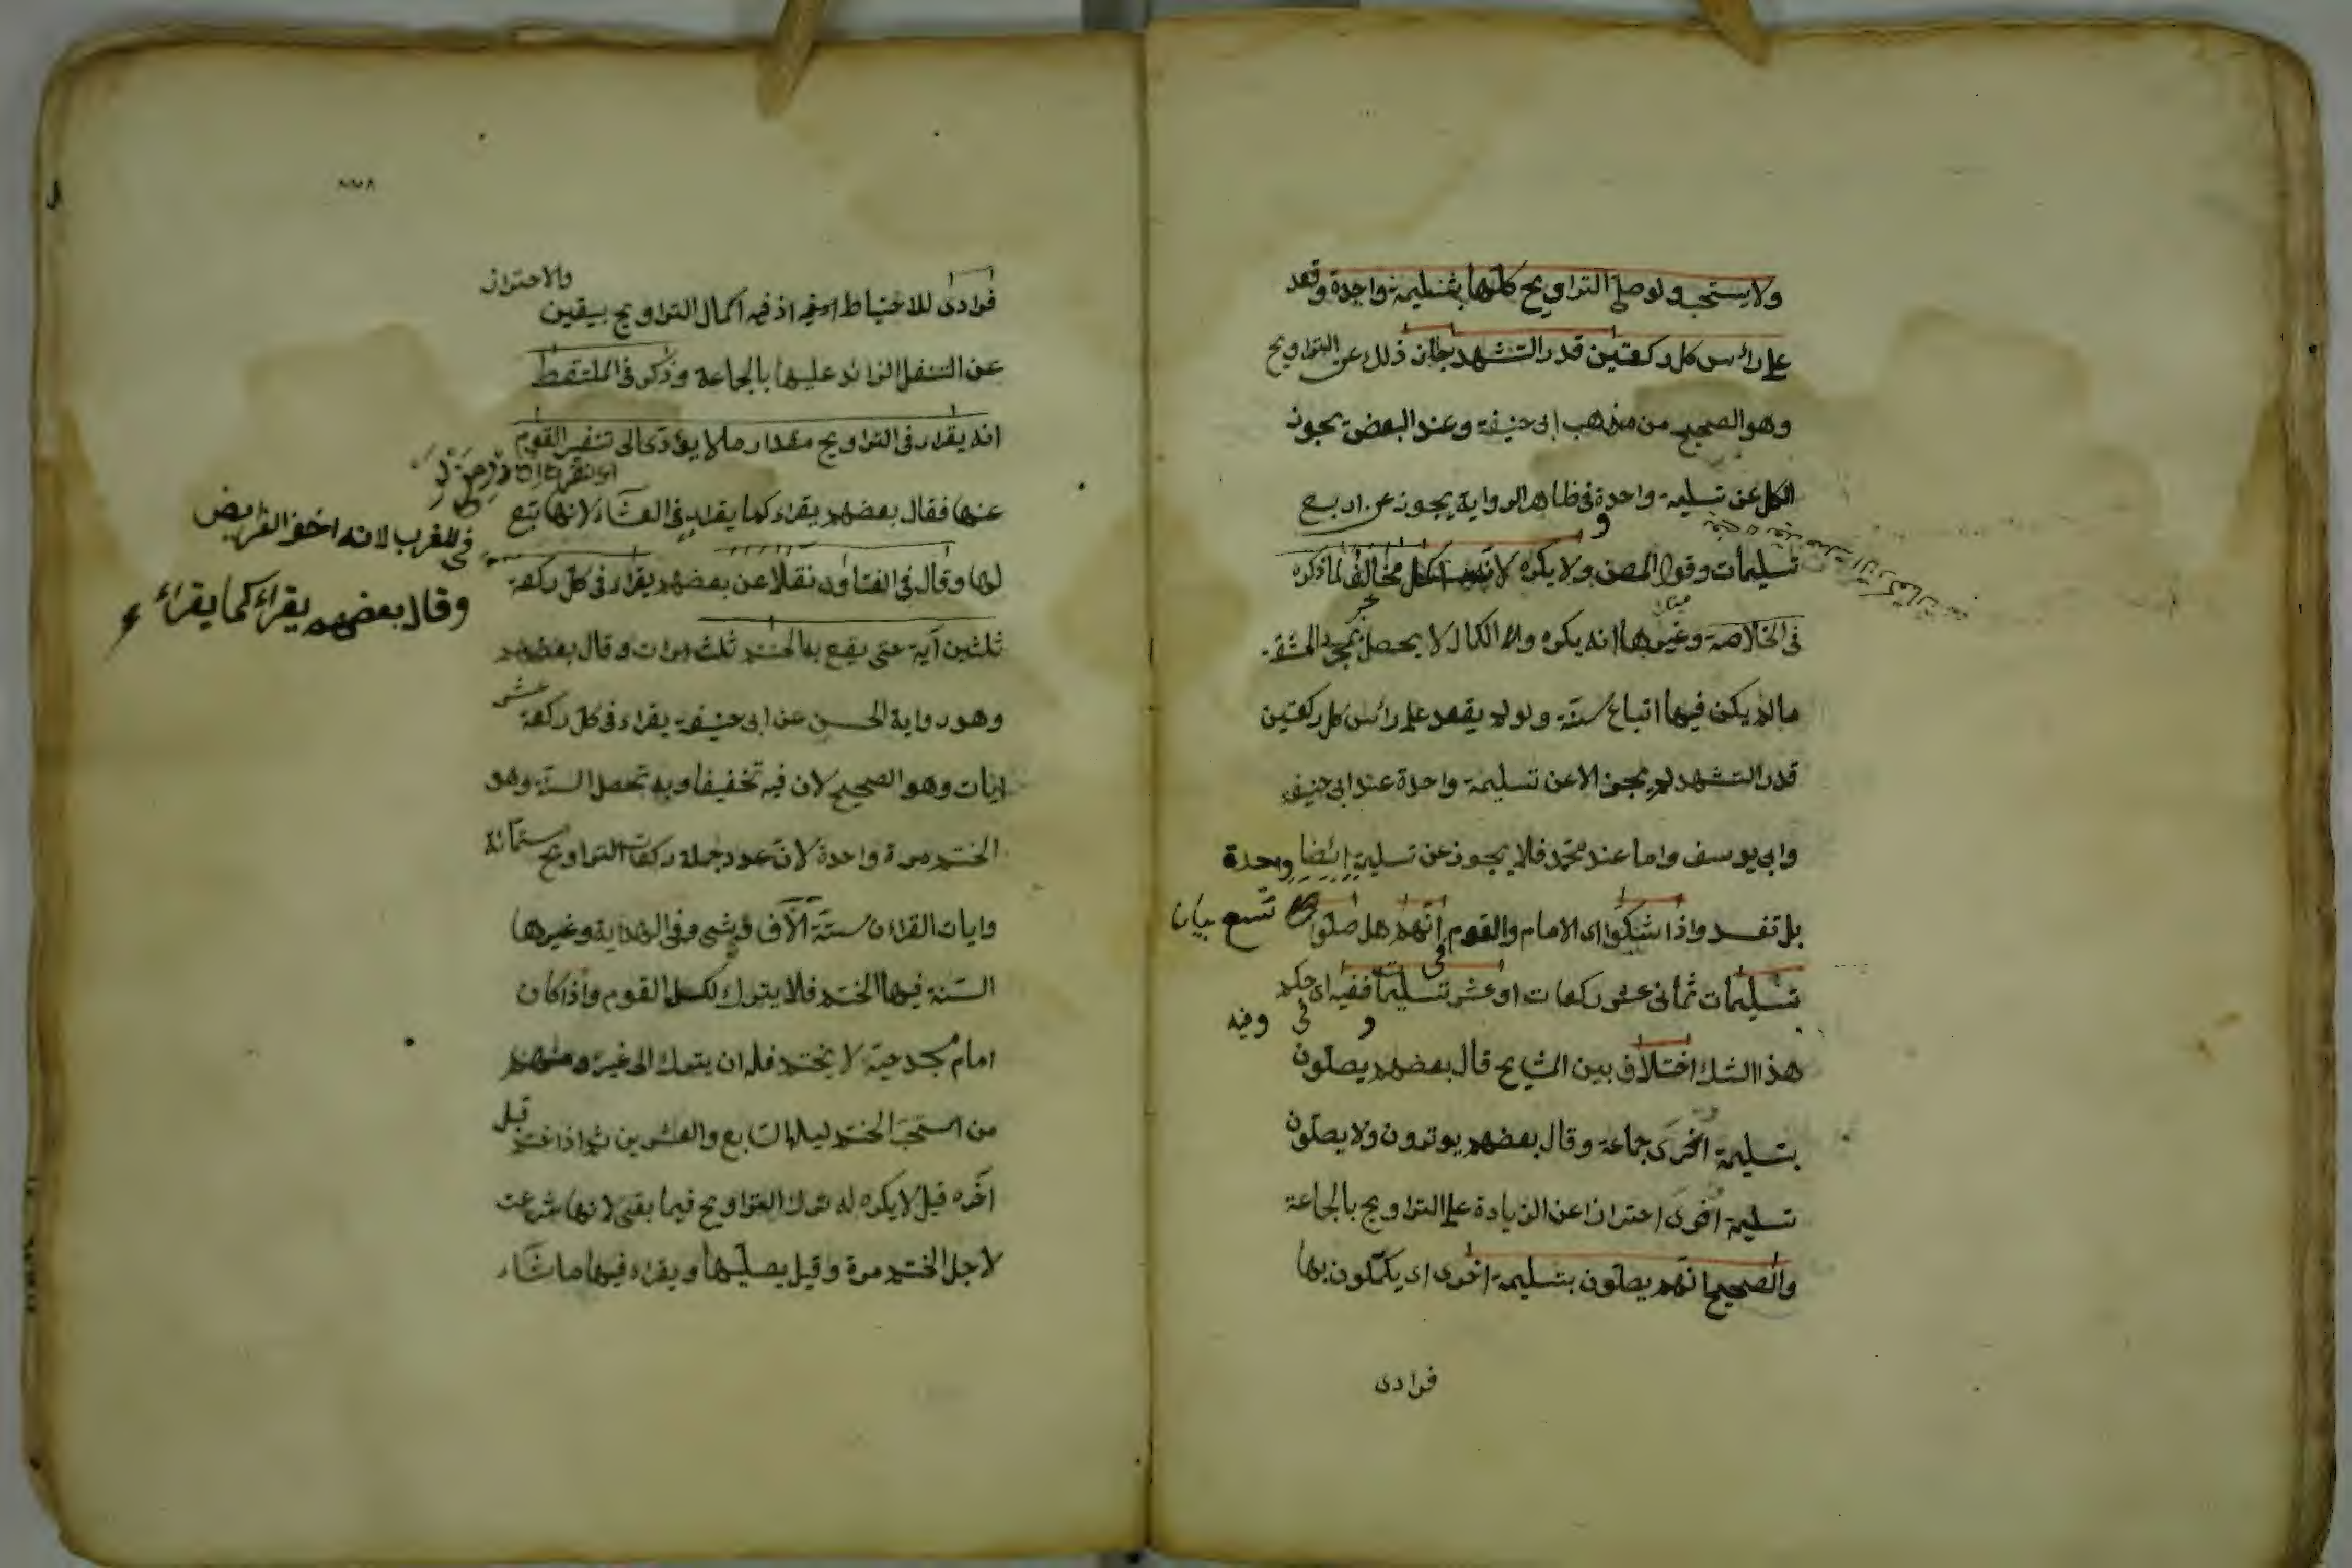 ولا يستحب ولو صلى التراويح كلها بتسليمة واحدة وقعد
على رأس كل ركعتين قدر التشهد جاز ذلك عن التراويح
وهو الصحيح من مذهب ابى حنيفة وعند البعض يجوز
الكل عن تسليمة واحدة فى ظاهر الرواية يجوز عن اربع
تسليمات وقول المصن ولا يكره لانه اكمل مخالف لما ذكره
فى الخلاصة وغيرها انه يكره والكمال لا يحصل بمجرد المشقة
ما لم يكن فيها اتباع سنة ولو لم يقعد على رأس كل ركعتين
قدر التشهد لم يجز الا عن تسليمة واحدة عند ابى حنيفة
وابى يوسف واما عند محمد فلا يجوز عن تسليمة ايضا واحدة
بل تفسد واذا شكوا اى الامام والقوم فى انهم هل صلوا تسع بيان
تسليمات ثمانى عشر ركعات او عشر تسليمات ففيه اى حكم
و فى وفيه
هذا الشك اختلاف بين المشايخ قال بعضهم يصلون
بتسليمة اخرى جماعة وقال بعضهم يوترون ولا يصلون
تسليمة اخرى احترازا عن الزيادة على التراويح بالجماعة
والصحيح انهم يصلون بتسليمة اخرى اى يكملون بها
فرادى
والاحتراز
فرادى للاحتياط اذ فيه اكمال التراويح بيقين
عن التنفل الزائد عليها بالجماعة وذكر فى الملتقط
انه يقراء فى التراويح مقدار ما لا يؤدى الى تنفير القوم
عنها فقال بعضهم يقراء كما يقراء فى العشاء لانها تبع
فى المغرب لانه اخف الفرايض
لها وقال فى الفتاوى نقلا عن بعضهم يقراء فى كل ركعة
وقال بعضهم يقراء كما يقراء
ثلثين آية حتى يقع به الختم ثلث مرات وقال بعضهم
وهو رواية الحسن عن ابى حنيفة يقراء فى كل ركعة عشر
ايات وهو الصحيح لان فيه تخفيفا وبه تحصل السنة وهو
الختم مرة واحدة لان عدد جملة ركعات التراويح ستمائة
وايات القراءن ستة آلاف وشىء وفى الهداية وغيرها
السنة فيها الختم فلا يترك لكسل القوم واذا كان
امام مسجد حيه لا يختم فله ان يترك الى غيره ومنهم
من استحب الختم ليلة السابع والعشرين ثم اذا ختم قبل
آخره قيل لا يكره له ترك التراويح فيما بقى لانها شرعت
لاجل الختم مرة وقيل يصليها ويقراء فيها ما شاء